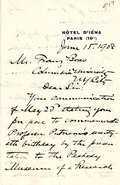 HÔTEL D'IÉNA
PARIS (16e)
June 15. 1908
Mr. Franz Boas
Columbia University
N.Y. City
Dear Sir:
Your communication
of May 23d asking you
you pose to commemorate
Professor Putnam's seventi-
eth birthday by the presen-
tation to the Peabody
Museum of a Research